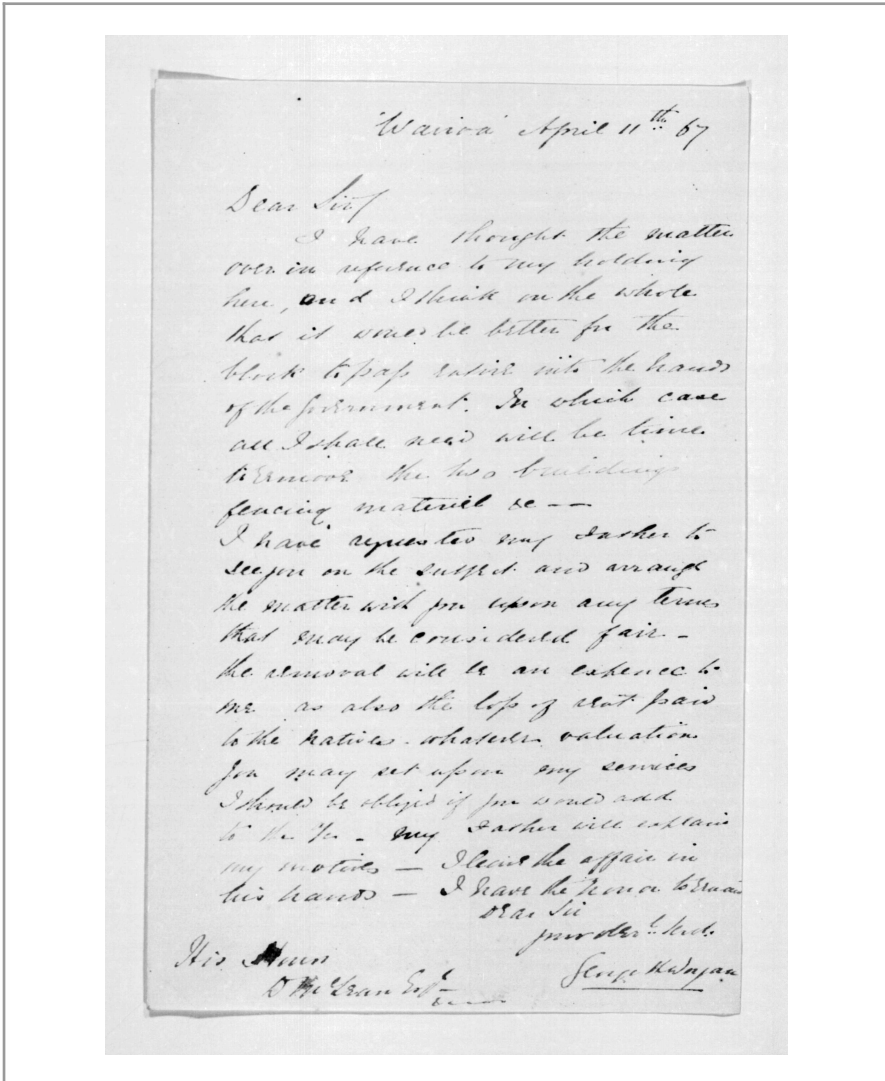 "Wairoa" April 11th 67
Dear Sir/
I have thought the matter
over in reference to my holding
here, and I think on the whole
that it would be better for the
block to pass entire into the hands
of the Government. In which case
all I shall need will be time
to remove the two buildings
fencing material &c --
I have requested my Father to
see you on the subject and arrange
the matter with you upon any terms
that may be considered fair -
the removal will be an expence to
me as also the loss of rent paid
to the natives - whatever valuation
you may set upon my services
I should be obliged if you would add
to the - my Father will explain
my motives - I leave the affair in
his hands - I have the honor to remain
Dear Sir
your
George H Worgan
His Honor
D McLean Esqr